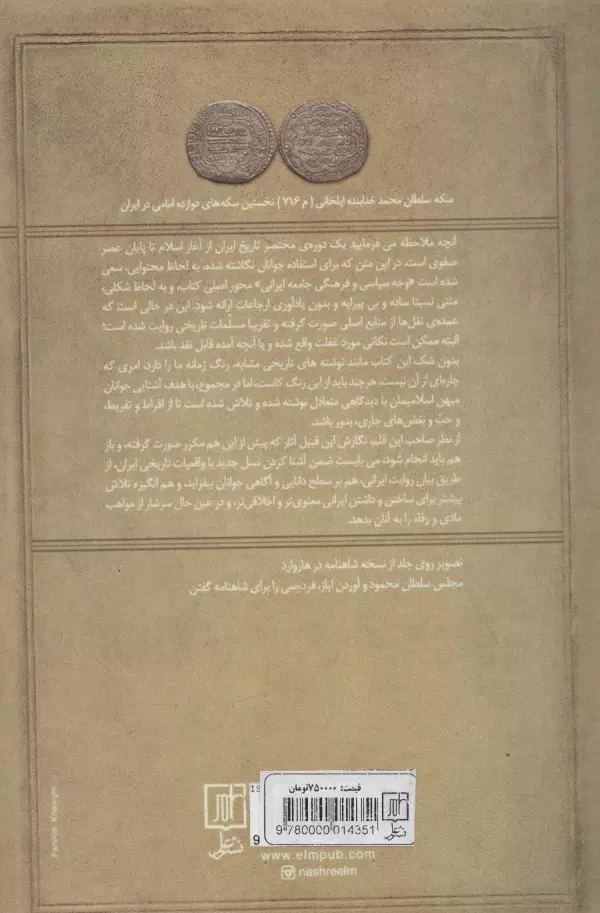 سکه سلطان محمد خدابنده ایلخانی (م ۷۱۶) نخستین سکه‌های دوازده امامی در ایران
آنچه ملاحظه می فرمایید یک دوره‌ی مختصر تاریخ ایران از آغاز اسلام تا پایان عصر
صفوی است. در این متن که برای استفاده جوانان نگاشته شده، به لحاظ محتوایی، سعی
شده است «وجه سیاسی و فرهنگی جامعه ایرانی» محور اصلی کتاب، و به لحاظ شکلی،
متنی نسبتا ساده و بی پیرایه و بدون یادآوری ارجاعات ارائه شود. این در حالی است که
عمده‌ی نقل‌ها از منابع اصلی صورت گرفته و تقریبا مسلّمات تاریخی روایت شده است؛
البته ممکن است نکاتی مورد غفلت واقع شده و یا آنچه آمده قابل نقد باشد.
بدون شک این کتاب مانند نوشته های تاریخی مشابه، رنگ زمانه ما را دارد، امری که
چاره‌ای از آن نیست، هرچند باید از این رنگ کاست، اما در مجموع، با هدف آشنایی جوانان
میهن اسلامیمان با دیدگاهی متعادل نوشته شده و تلاش شده است تا از افراط و تفریط،
و حبّ و بغض‌های جاری، بدور باشد.
از نظر صاحب این قلم، نگارش این قبیل آثار که پیش از این هم مکرر صورت گرفته، و باز
هم باید انجام شود، می بایست ضمن آشنا کردن نسل جدید با واقعیات تاریخی ایران، از
طریق بیان روایت ایرانی، هم بر سطح دانایی و آگاهی جوانان بیفزاید، و هم انگیزه تلاش
بیشتر برای ساختن و داشتن ایرانی معنوی‌تر و اخلاقی‌تر، و در عین حال سرشار از مواهب
مادی و رفاه را به آنان بدهد.
تصویر روی جلد از نسخه شاهنامه در هاروارد
مجلس سلطان محمود و آوردن ایاز، فردیسی را برای شاهنامه گفتن
قیمت: ۷۵۰۰۰۰تومان
IS
9
9 780000 014351
نشر علم
www.elmpub.com
nashreelm